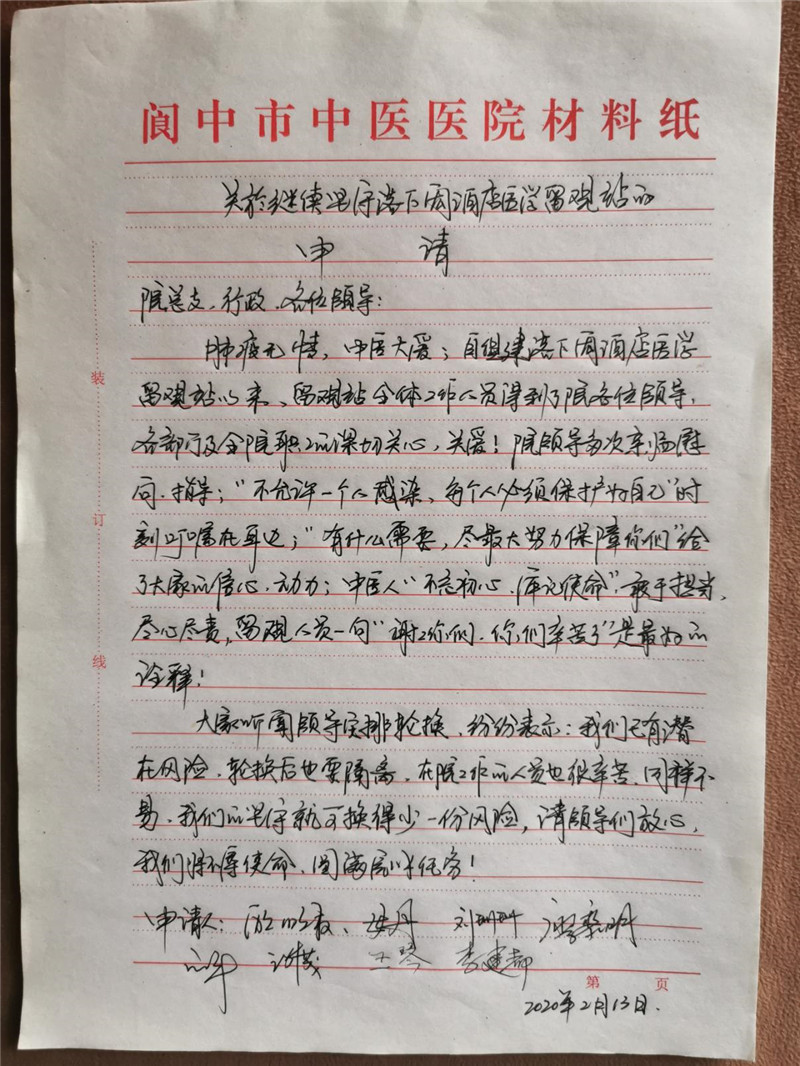 阆中市中医医院材料纸
关於继续坚守落下闳酒店医学留观站的
申 请
院总支、行政、各位领导：
肺疫无情，中医大爱；自组建落下闳酒店医学
留观站以来、留观站全体工作人员得到了院各位领导、
各部门及全院职工的深切关心，关爱！院领导多次亲临慰
问、指导；“不允许一个人感染，每个人必须保护好自己”时
刻叮嘱在耳边；“有什么需要，尽最大努力保障你们”给
了大家的信心、动力；中医人“不忘初心、牢记使命”，敢于担当、
尽心尽责，留观人员一句“谢谢你们、你们辛苦了”是最好的
诠释！
大家听闻领导安排轮换、纷纷表示：我们已有潜
在风险，轮换后也要隔离，在院工作的人员也很辛苦、同样不
易、我们的坚守就可换得少一份风险，请领导们放心，
我们将不辱使命、圆满完成任务！
申请人： 丹 刘
王琴 李建
第 页
2020年2月13日.
装
订
线